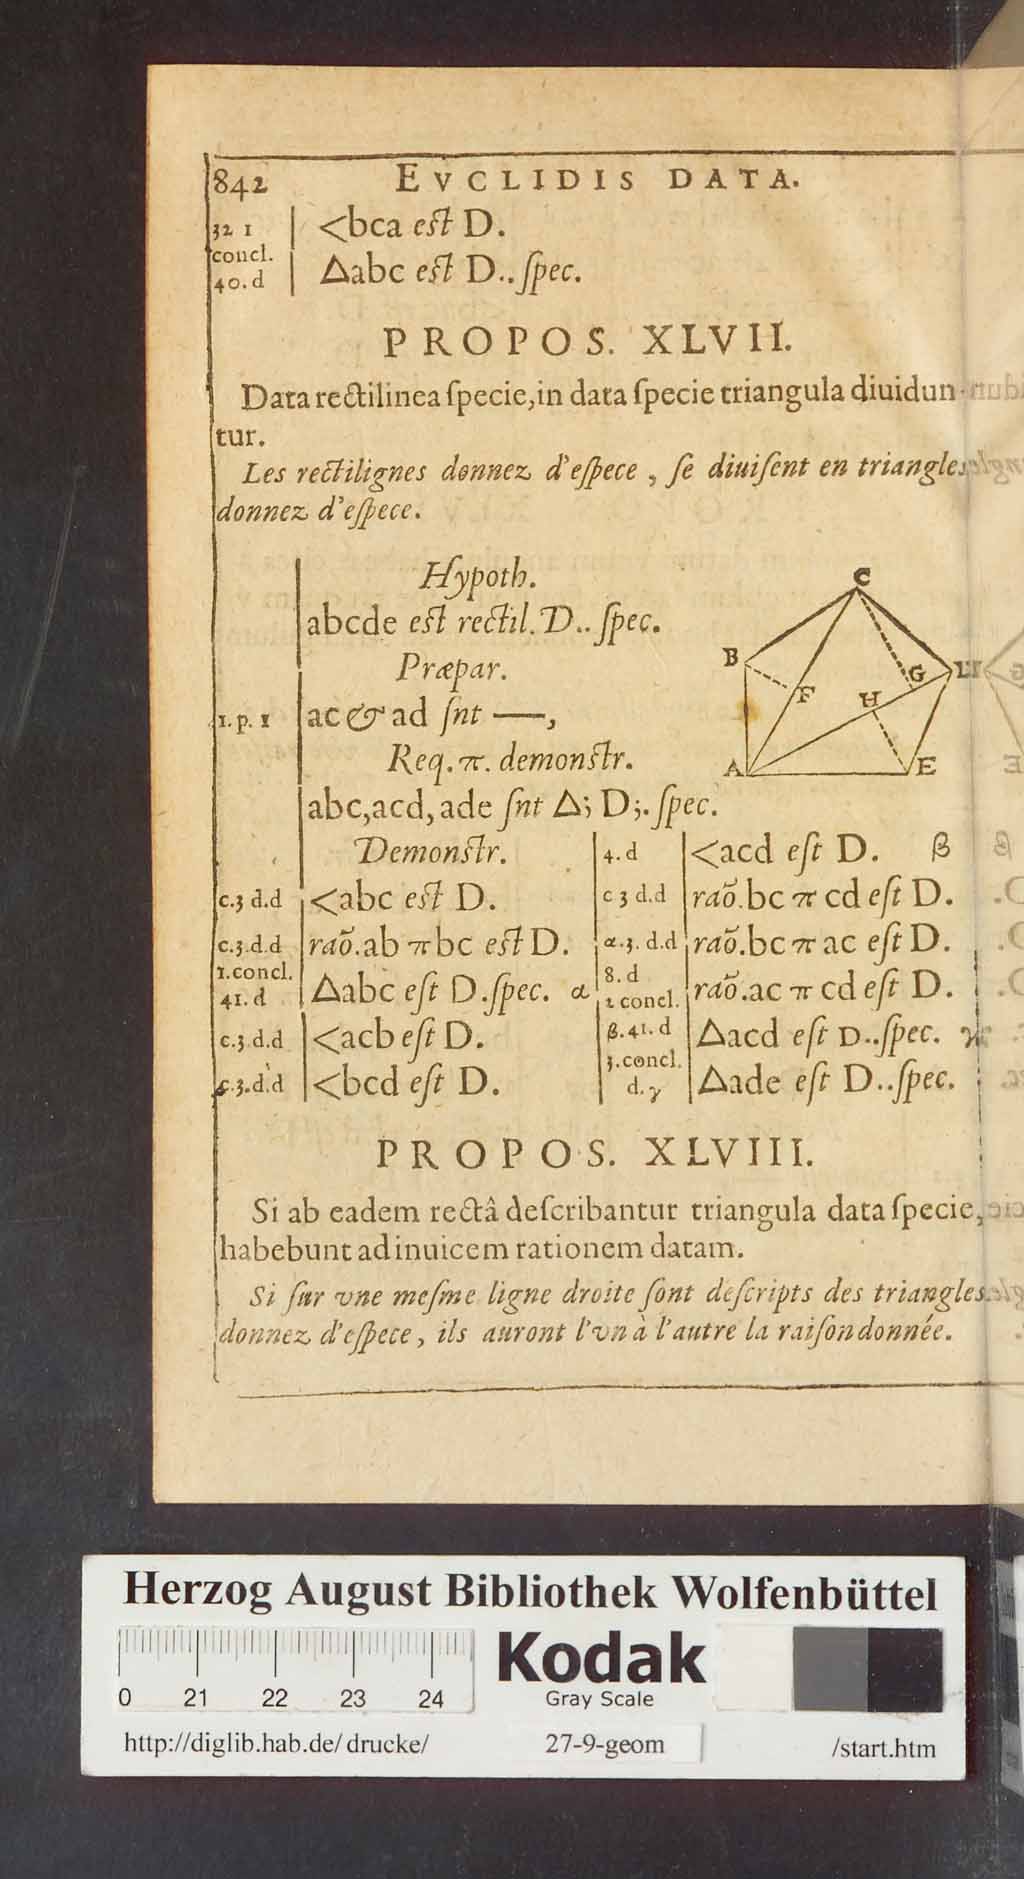 842 EVCLIDIS DATA.
32 1 | <bca est D.
concl.
40. d | Δabc est D.. ſpec.
PROPOS. XLVII.
Data rectilinea ſpecie, in data ſpecie triangula diuidun-
tur.
Les rectilignes donnez d'eſpece, ſe diuiſent en triangles
donnez d'eſpece.
Hypoth.
abcde est rectil. D.. ſpec.
Præpar.
1. p. 1 | ac & ad ſnt —,
Req. π. demonstr.
abc, acd, ade ſnt Δ; D;. ſpec.
C
B
G
F
H
A
E
Demonstr.
c.3 d.d | <abc est D.
c.3.d.d | raõ.ab π bc est D.
1.concl.
41. d | Δabc eſt D.ſpec. α
c.3.d.d | <acb eſt D.
c.3.d.d | <bcd eſt D.
4. d | <acd eſt D. β
c 3 d.d | raõ.bc π cd eſt D.
α.3. d.d | raõ.bc π ac eſt D.
8. d
2 concl. | raõ.ac π cd eſt D.
β.41. d | Δacd eſt D..ſpec. γ
3.concl.
d. γ | Δade eſt D..ſpec.
PROPOS. XLVIII.
Si ab eadem rectâ deſcribantur triangula data ſpecie,
habebunt adinuicem rationem datam.
Si ſur vne meſme ligne droite ſont deſcripts des triangles
donnez d'eſpece, ils auront l'vn à l'autre la raiſon donnée.
Herzog August Bibliothek Wolfenbüttel
Kodak
Gray Scale
0 21 22 23 24
http://diglib.hab.de/drucke/ 27-9-geom /start.htm